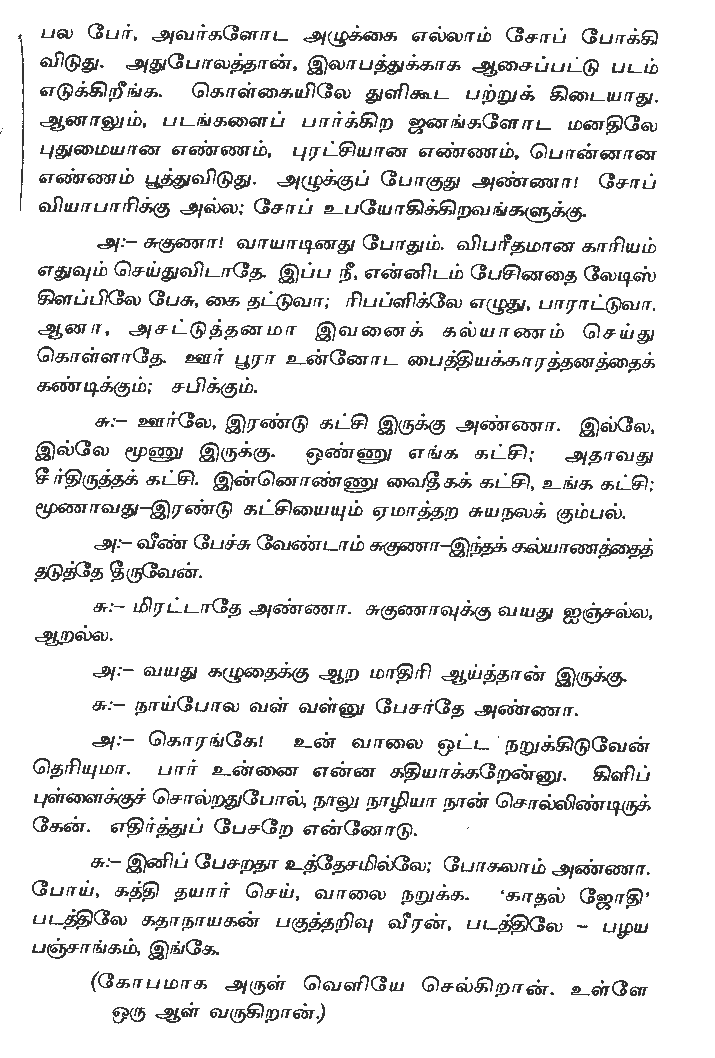 பல பேர், அவர்களோட அழுக்கை எல்லாம் சோப் போக்கி
விடுது. அதுபோலத்தான், இலாபத்துக்காக ஆசைப்பட்டு படம்
எடுக்கிறீங்க. கொள்கையிலே துளிகூட பற்றுக் கிடையாது.
ஆனாலும், படங்களைப் பார்க்கிற ஜனங்களோட மனதிலே
புதுமையான எண்ணம், புரட்சியான எண்ணம், பொன்னான
எண்ணம் பூத்துவிடுது. அழுக்குப் போகுது அண்ணா! சோப்
வியாபாரிக்கு அல்ல; சோப் உபயோகிக்கிறவங்களுக்கு.
அ:– சுகுணா! வாயாடினது போதும். விபரீதமான காரியம்
எதுவும் செய்துவிடாதே. இப்ப நீ, என்னிடம் பேசினதை லேடிஸ்
கிளப்பிலே பேசு, கை தட்டுவா; ரிபப்ளிக்லே எழுது, பாராட்டுவா.
ஆனா, அசட்டுத்தனமா இவனைக் கல்யாணம் செய்து
கொள்ளாதே. ஊர் பூரா உன்னோட பைத்தியக்காரத்தனத்தைக்
கண்டிக்கும்; சபிக்கும்.
சு:– ஊர்லே, இரண்டு கட்சி இருக்கு அண்ணா. இல்லே,
இல்லே மூணு இருக்கு. ஒண்ணு எங்க கட்சி; அதாவது
சீர்திருத்தக் கட்சி. இன்னொண்ணு வைதீகக் கட்சி, உங்க கட்சி;
மூணாவது–இரண்டு கட்சியையும் ஏமாத்தற சுயநலக் கும்பல்.
அ:– வீண் பேச்சு வேண்டாம் சுகுணா–இந்தக் கல்யாணத்தைத்
தடுத்தே தீருவேன்.
சு:– மிரட்டாதே அண்ணா. சுகுணாவுக்கு வயது ஐஞ்சல்ல,
ஆறல்ல.
அ:– வயது கழுதைக்கு ஆற மாதிரி ஆய்த்தான் இருக்கு.
சு:– நாய்போல வள் வள்னு பேசர்தே அண்ணா.
அ:– கொரங்கே! உன் வாலை ஒட்ட நறுக்கிடுவேன்
தெரியுமா. பார் உன்னை என்ன கதியாக்கறேன்னு. கிளிப்
புள்ளைக்குச் சொல்றதுபோல், நாலு நாழியா நான் சொல்லிண்டிருக்
கேன். எதிர்த்துப் பேசறே என்னோடு.
சு:– இனிப் பேசறதா உத்தேசமில்லே; போகலாம் அண்ணா.
போய், கத்தி தயார் செய், வாலை நறுக்க. ‘காதல் ஜோதி’
படத்திலே கதாநாயகன் பகுத்தறிவு வீரன், படத்திலே – பழய
பஞ்சாங்கம், இங்கே.
(கோபமாக அருள் வெளியே செல்கிறான். உள்ளே
ஒரு ஆள் வருகிறான்.)